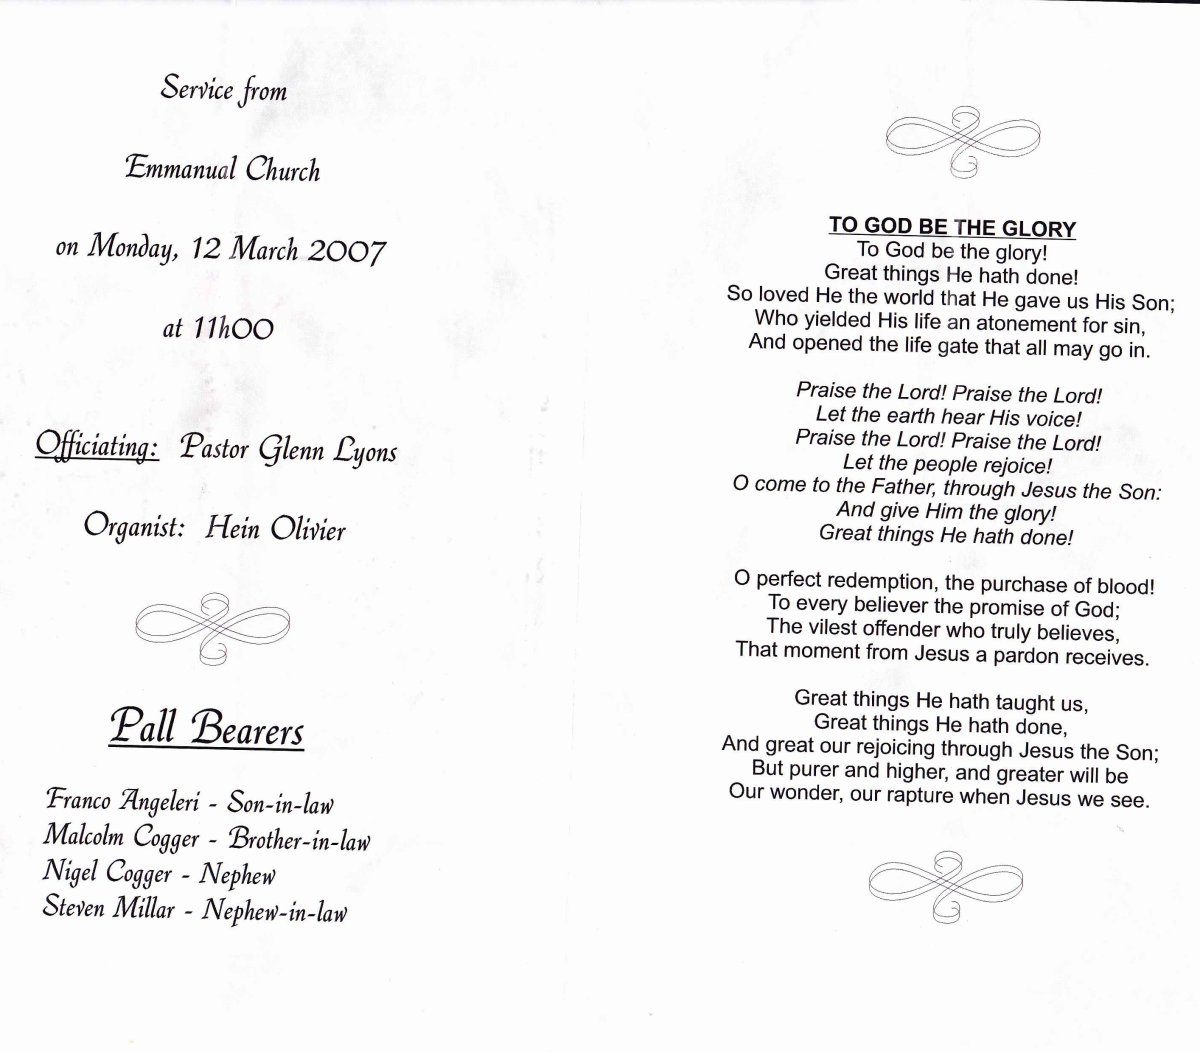 Service from
Emmanual Church
on Monday, 12 March 2007
at 11h00
Officiating: Pastor Glenn Lyons
Organist: Hein Olivier
Pall Bearers
Franco Angeleri - Son-in-law
Malcolm Cogger - Brother-in-law
Nigel Cogger - Nephew
Steven Millar - Nephew-in-law
TO GOD BE THE GLORY
To God be the glory!
Great things He hath done!
So loved He the world that He gave us His Son;
Who yielded His life an atonement for sin,
And opened the life gate that all may go in.
Praise the Lord! Praise the Lord!
Let the earth hear His voice!
Praise the Lord! Praise the Lord!
Let the people rejoice!
O come to the Father, through Jesus the Son:
And give Him the glory!
Great things He hath done!
O perfect redemption, the purchase of blood!
To every believer the promise of God;
The vilest offender who truly believes,
That moment from Jesus a pardon receives.
Great things He hath taught us,
Great things He hath done,
And great our rejoicing through Jesus the Son;
But purer and higher, and greater will be
Our wonder, our rapture when Jesus we see.